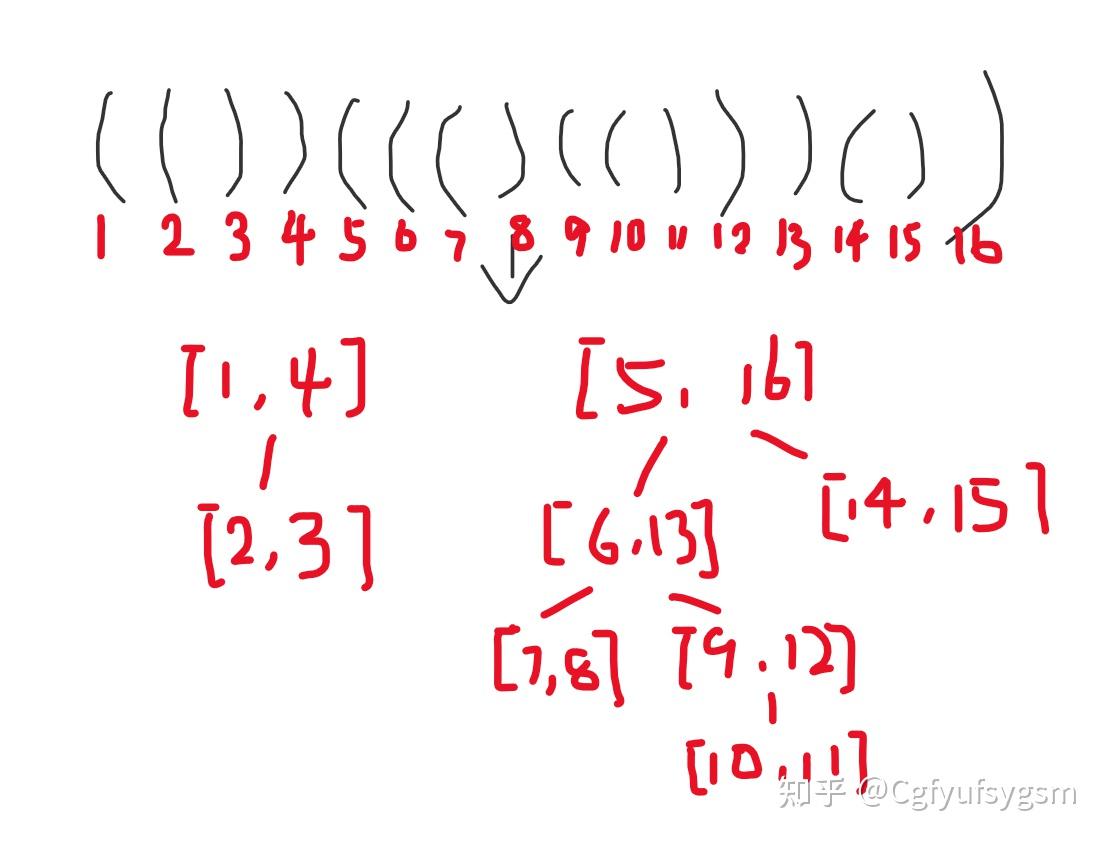 ( ( ) ) ( ( ( ) ( ( ) ) ) ( ) )
1 2 3 4 5 6 7 8 9 10 11 12 13 14 15 16
[1,4] [5,16]
[14,15]
[2,3] [6,13]
[7,8] [9,12]
[10,11]
知乎 @Cgfyufsygsm